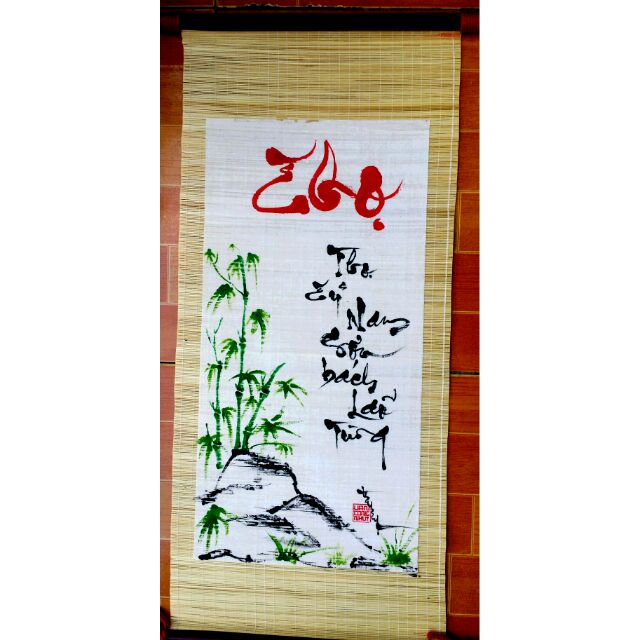 Thọ
Thọ
Tỷ
Nam
Sơn
bách
Lão
Tùng